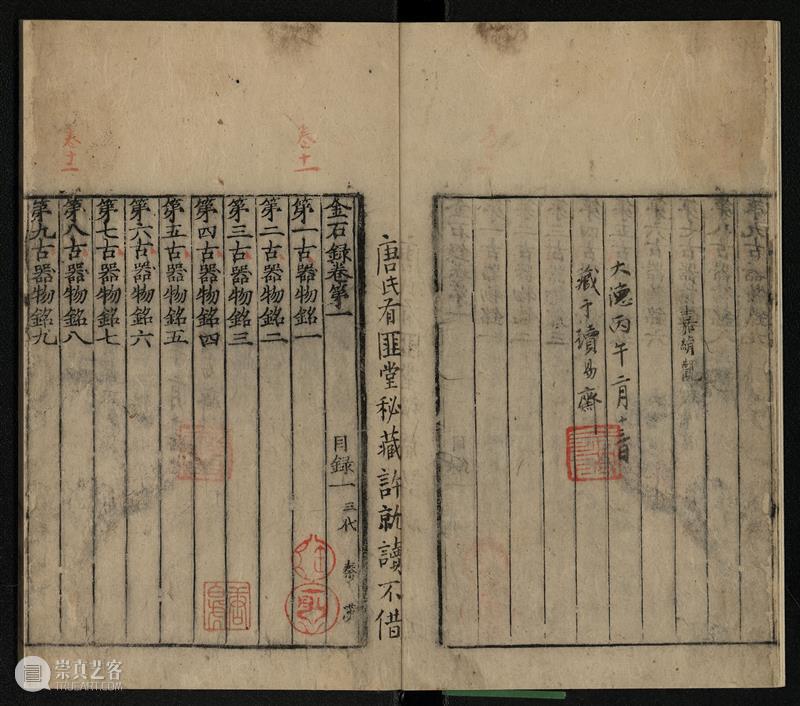 嘉靖觀
大德丙午二月十三日
藏于讀易齋
唐氏有匪堂秘藏許就讀不借
金石錄卷第一
目録一 三代 秦 漢
第一古器物銘一
第二古器物銘二
第三古器物銘三
第四古器物銘四
第五古器物銘五
第六古器物銘六
第七古器物銘七
第八古器物銘八
第九古器物銘九
卷十一
卷十一
崇真艺客
TRUEART.COM